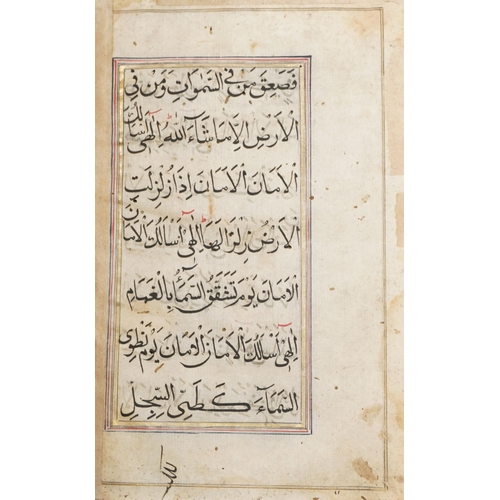 فَصَعِقَ مَنْ فِي السَّمٰوَاتِ وَمَنْ فِي
الْاَرْضِ اِلَّا مَا شَآءَ اللّٰهُ اِلٰهِي اَسْاَلُكَ
الْاَمَانَ الْاَمَانَ اِذَا زُلْزِلَتِ
الْاَرْضُ زِلْزَالَهَا اِلٰهِي اَسْاَلُكَ الْاَمَانَ
الْاَمَانَ يَوْمَ تَشَقَّقُ السَّمَآءُ بِالْغَمَامِ
اِلٰهِي اَسْاَلُكَ الْاَمَانَ الْاَمَانَ يَوْمَ نَطْوِي
السَّمَآءَ كَطَيِّ السِّجِلِّ